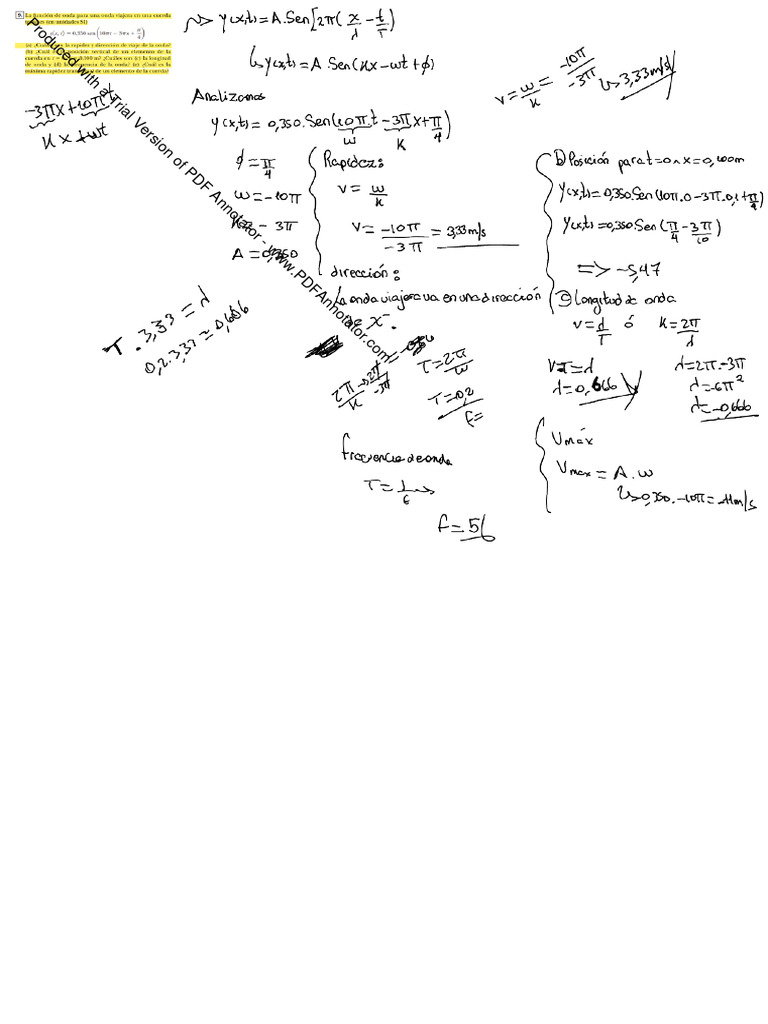 9. La función de onda para una onda viajera en una cuerda
tensa es (en unidades SI)
y(x, t) = 0.350 sen (10πt − 3πx + π/4)
(a) ¿Cuál es la rapidez y dirección de viaje de la onda?
(b) ¿Cuál es la posición vertical de un elemento de la
cuerda en t = 0, x = 0.100 m? ¿Cuáles son (c) la longitud
de onda y (d) la frecuencia de la onda? (e) ¿Cuál es la
máxima rapidez transversal de un elemento de la cuerda?
Produced with a Trial Version of PDF Annotator - www.PDFAnnotator.com
y(x,t) = A.Sen[2π(x/λ − t/T)
y(x,t) = A.Sen(kx − wt + ϕ)
v = w/k = −10π/−3π
3,33 m/s
−3πx + 10π
kx + wt
Analizamos
y(x,t) = 0,350.Sen(10πt − 3πx + π/4)
w
k
ϕ = π/4
w = −10π
− 3π
A = 0,350
Rapidez:
v = w/k
v = −10π/−3π = 3,33 m/s
dirección:
La onda viajera va en una dirección
x⁻.
b) Posición para t=0 ∧ x=0,100m
y(x,t) = 0,350.Sen(10π.0 − 3π.0,1 + π/4)
y(x,t) = 0,350.Sen(π/4 − 3π/10)
=> −5,47
c) Longitud de onda
v = λ/T ó k = 2π/λ
v.T = λ
λ = 0,666
λ = 2π.−3π
λ = −6π²
λ = −0,666
T . 3,33 = λ
0,2.3,33 = 0,666
T = 2π/w
T = 0,2
f=
frecuencia de onda
f = 5
Vmáx
Vmax = A.w
0,350.−10π = −11m/s